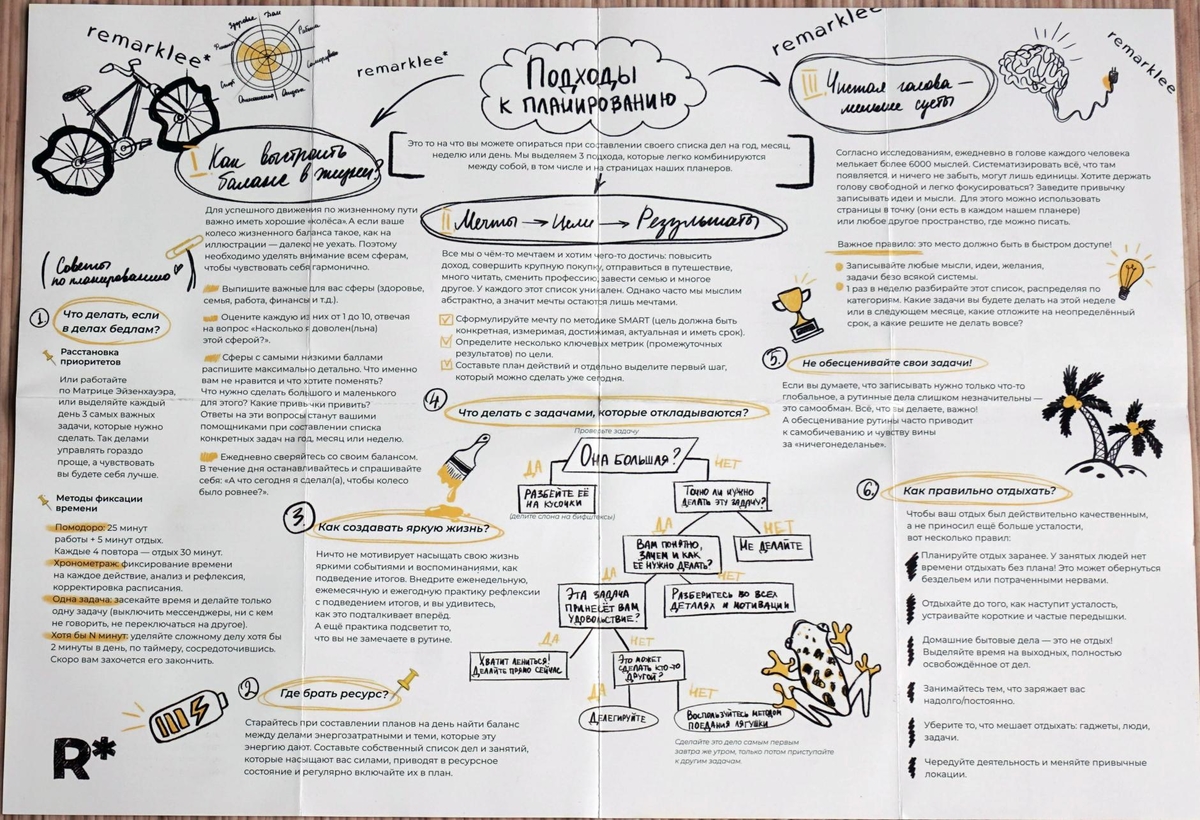 remarklee*
Здоровье
Дом
Работа
Отношения
Спорт
remarklee*
Подходы
к планированию
remarklee
remarklee
Это то на что вы можете опираться при составлении своего списка дел на год, месяц,
неделю или день. Мы выделяем 3 подхода, которые легко комбинируются
между собой, в том числе и на страницах наших планеров.
I Как выстроить
баланс в жизни?
Для успешного движения по жизненному пути
важно иметь хорошие «колёса». А если ваше
колесо жизненного баланса такое, как на
иллюстрации — далеко не уехать. Поэтому
необходимо уделять внимание всем сферам,
чтобы чувствовать себя гармонично.
Выпишите важные для вас сферы (здоровье,
семья, работа, финансы и т.д.).
Оцените каждую из них от 1 до 10, отвечая
на вопрос «Насколько я доволен(льна)
этой сферой?».
Сферы с самыми низкими баллами
распишите максимально детально. Что именно
вам не нравится и что хотите поменять?
Что нужно сделать большого и маленького
для этого? Какие привычки привить?
Ответы на эти вопросы станут вашими
помощниками при составлении списка
конкретных задач на год, месяц или неделю.
Ежедневно сверяйтесь со своим балансом.
В течение дня останавливайтесь и спрашивайте
себя: «А что сегодня я сделал(а), чтобы колесо
было ровнее?».
II Мечты → Цели → Результаты
Все мы о чём-то мечтаем и хотим чего-то достичь: повысить
доход, совершить крупную покупку, отправиться в путешествие,
много читать, сменить профессию, завести семью и многое
другое. У каждого этот список уникален. Однако часто мы мыслим
абстрактно, а значит мечты остаются лишь мечтами.
Сформулируйте мечту по методике SMART (цель должна быть
конкретная, измеримая, достижимая, актуальная и иметь срок).
Определите несколько ключевых метрик (промежуточных
результатов) по цели.
Составьте план действий и отдельно выделите первый шаг,
который можно сделать уже сегодня.
III Чистая голова —
меньше суеты
Согласно исследованиям, ежедневно в голове каждого человека
мелькает более 6000 мыслей. Систематизировать всё, что там
появляется, и ничего не забыть, могут лишь единицы. Хотите держать
голову свободной и легко фокусироваться? Заведите привычку
записывать идеи и мысли. Для этого можно использовать
страницы в точку (они есть в каждом нашем планере)
или любое другое пространство, где можно писать.
Важное правило: это место должно быть в быстром доступе!
Записывайте любые мысли, идеи, желания,
задачи безо всякой системы.
1 раз в неделю разбирайте этот список, распределяя по
категориям. Какие задачи вы будете делать на этой неделе
или в следующем месяце, какие отложите на неопределённый
срок, а какие решите не делать вовсе?
(Советы
по планированию)
1 Что делать, если
в делах бедлам?
Расстановка
приоритетов
Или работайте
по Матрице Эйзенхауэра,
или выделяйте каждый
день 3 самых важных
задачи, которые нужно
сделать. Так делами
управлять гораздо
проще, а чувствовать
вы будете себя лучше.
Методы фиксации
времени
Помодоро: 25 минут
работы + 5 минут отдых.
Каждые 4 повтора — отдых 30 минут.
Хронометраж: фиксирование времени
на каждое действие, анализ и рефлексия,
корректировка расписания.
Одна задача: засекайте время и делайте только
одну задачу (выключить мессенджеры, ни с кем
не говорить, не переключаться на другое).
Хотя бы N минут: уделяйте сложному делу хотя бы
2 минуты в день, по таймеру, сосредоточившись.
Скоро вам захочется его закончить.
2 Где брать ресурс?
Старайтесь при составлении планов на день найти баланс
между делами энергозатратными и теми, которые эту
энергию дают. Составьте собственный список дел и занятий,
которые насыщают вас силами, приводят в ресурсное
состояние и регулярно включайте их в план.
R*
3. Как создавать яркую жизнь?
Ничто не мотивирует насыщать свою жизнь
яркими событиями и воспоминаниями, как
подведение итогов. Внедрите еженедельную,
ежемесячную и ежегодную практику рефлексии
с подведением итогов, и вы удивитесь,
как это подталкивает вперёд.
А ещё практика подсветит то,
что вы не замечаете в рутине.
4 Что делать с задачами, которые откладываются?
Проверьте задачу
Она большая?
ДА
НЕТ
Разбейте её
на кусочки
(делите слона на бифштексы)
Точно ли нужно
делать эту задачу?
ДА
НЕТ
Вам понятно,
зачем и как
её нужно делать?
Не делайте
ДА
НЕТ
Эта задача
принесёт вам
удовольствие?
Разберитесь во всех
деталях и мотивации
ДА
НЕТ
Хватит лениться!
Делайте прямо сейчас
Это может
сделать кто-то
другой?
ДА
НЕТ
Делегируйте
Воспользуйтесь методом
поедания лягушки
Сделайте это дело самым первым
завтра же утром, только потом приступайте
к другим задачам.
5. Не обесценивайте свои задачи!
Если вы думаете, что записывать нужно только что-то
глобальное, а рутинные дела слишком незначительны —
это самообман. Всё, что вы делаете, важно!
А обесценивание рутины часто приводит
к самобичеванию и чувству вины
за «ничегонеделанье».
6. Как правильно отдыхать?
Чтобы ваш отдых был действительно качественным,
а не приносил ещё больше усталости,
вот несколько правил:
Планируйте отдых заранее. У занятых людей нет
времени отдыхать без плана! Это может обернуться
бездельем или потраченными нервами.
Отдыхайте до того, как наступит усталость,
устраивайте короткие и частые передышки.
Домашние бытовые дела — это не отдых!
Выделяйте время на выходных, полностью
освобождённое от дел.
Занимайтесь тем, что заряжает вас
надолго/постоянно.
Уберите то, что мешает отдыхать: гаджеты, люди,
задачи.
Чередуйте деятельность и меняйте привычные
локации.